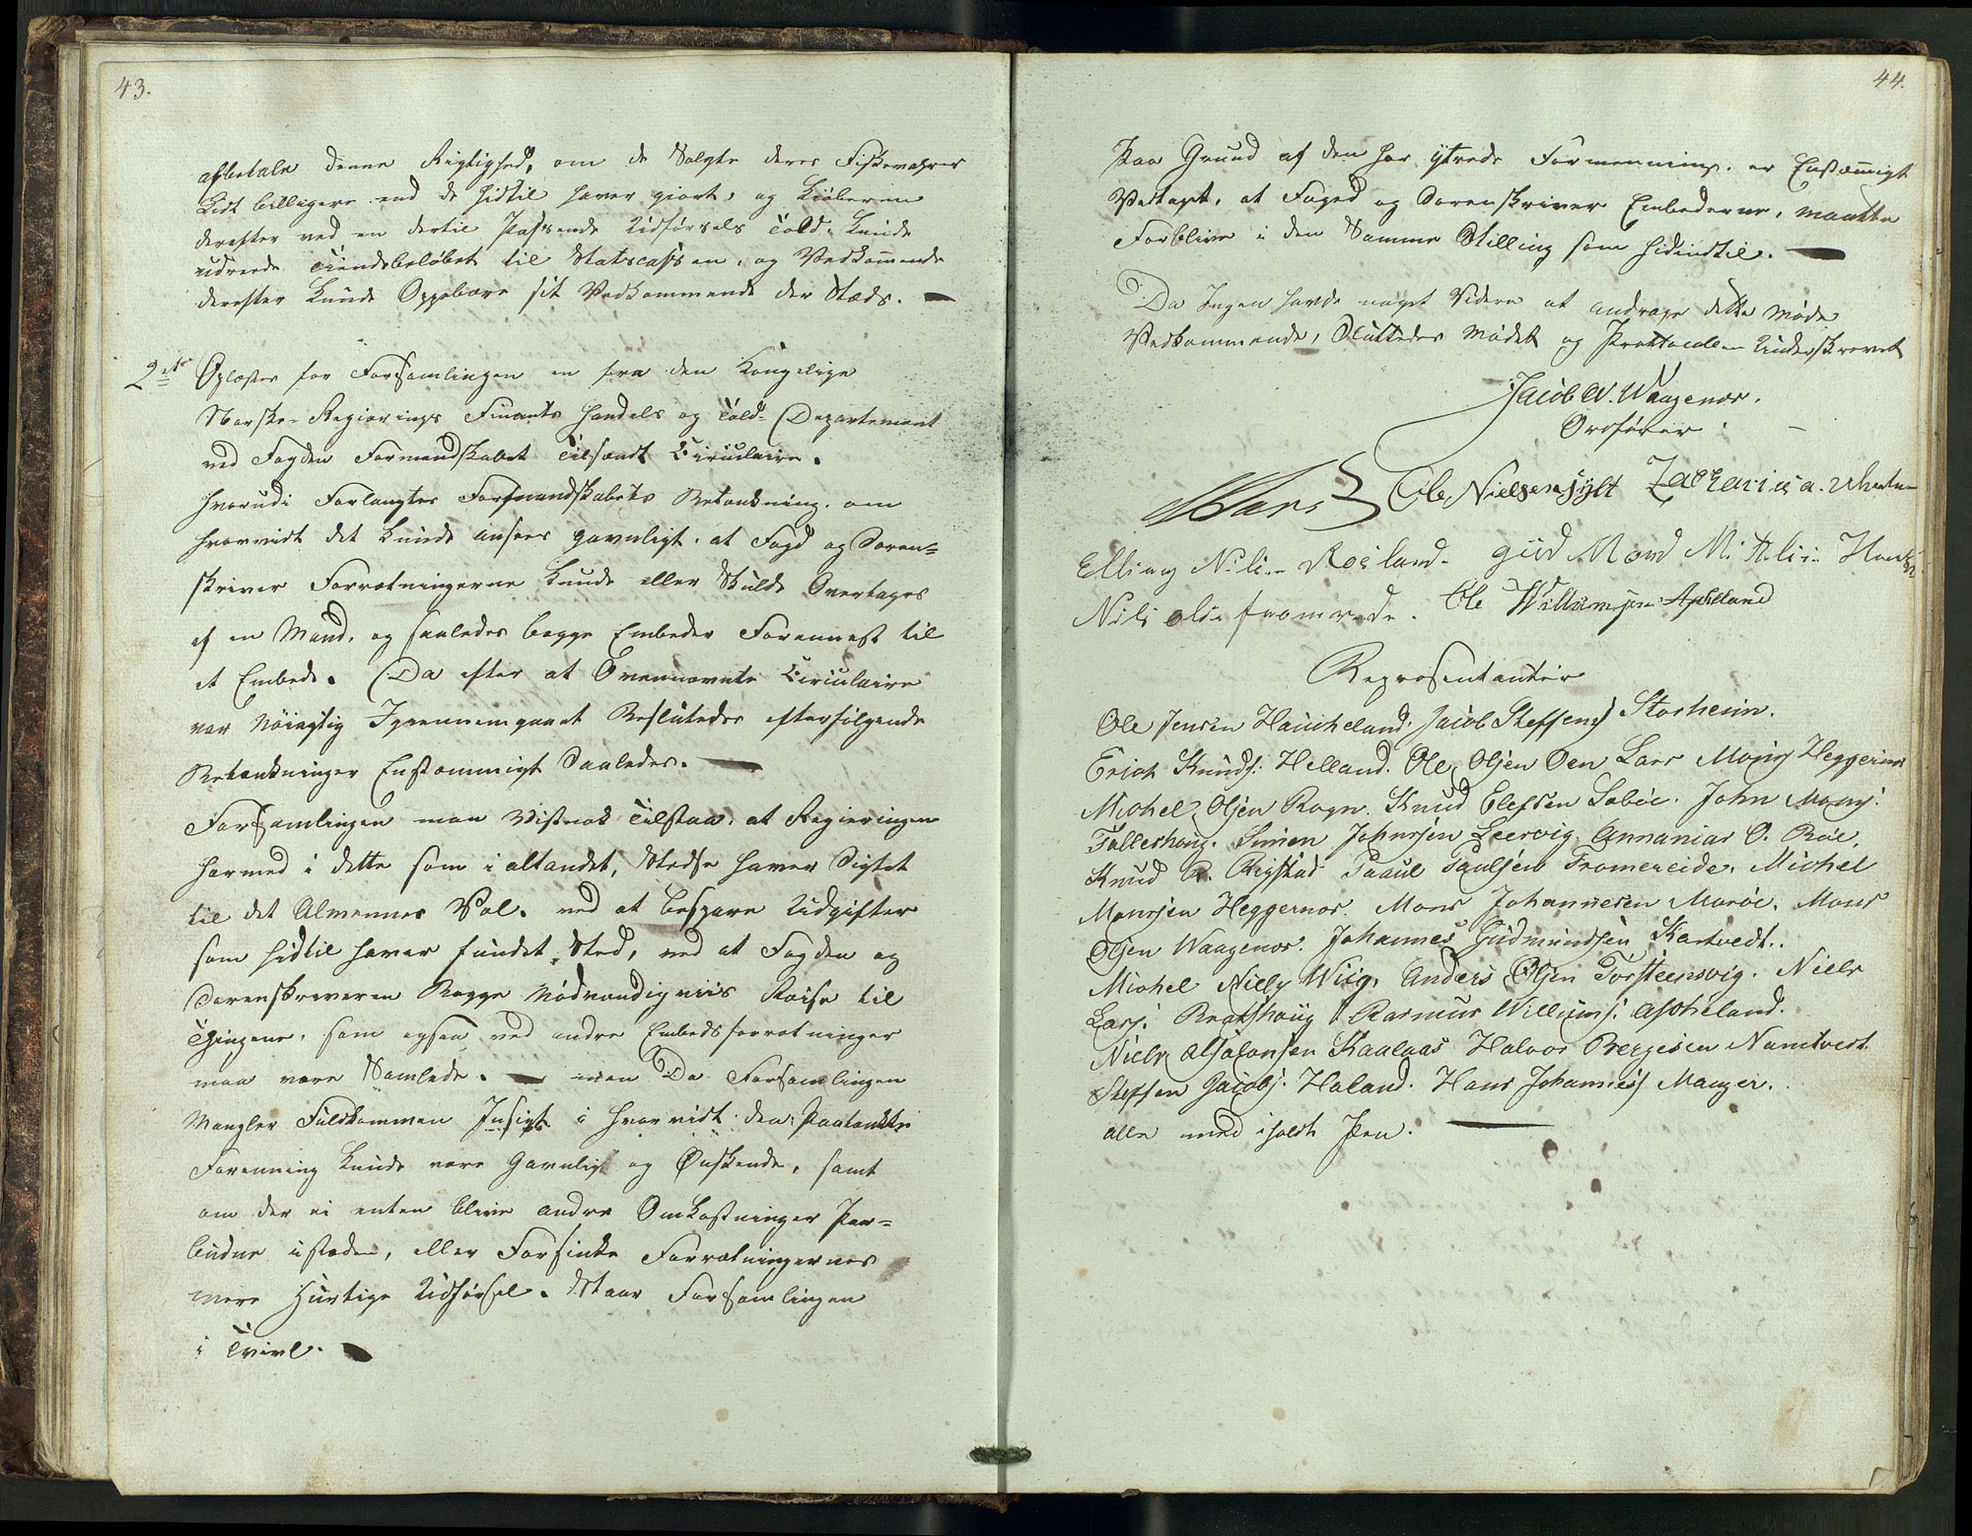 43.
afbetale denne Rigtighed, om de Solgte deres Fiskevahrer
Lidt billigere end de hidtil haver giort, og Kiøberne
derefter ved en dertil Passende Udførsels Told, kunde
udreede Tiendebeløbet til Statscassen, og Vedkommende
derefter kunde Oppebære sit Vedkommende der Stæds. —
2det Oplæstes for Forsamlingen en fra den Kongelige
Norske Regierings Finants Handels og Told Departement
ved Fogden Formandskabet Tilsendt Circulaire.
hvorudi Forlangtes Formandskabets Betænkning, om
hvorvidt det kunde ansees gavnligt, at Fogd og Soren=
skriver Forretningerne kunde eller Skulde Overtages
af en Mand, og saaledes begge Embeder Foreenest til
et Embede. Da efter at Ovennævnte Circulaire
var Nöiagtig Igjennemgaaet Besluttedes efterfølgende
Betænkninger Enstemmigt Saaledes. —
Forsamlingen maa Vistnok Tilstaa, at Regieringen
hermed i dette som i altandet, Stedse haver Sigtet
til det Almennes Vel, ved at bespare Udgifter
som hidtil haver fundet Sted, ved at Fogden og
Sorenskriveren Begge Nødvendigviis Reise til
Thingene, som ogsaa ved andre Embedsforretninger
maa være Samlede. — men Da Forsamlingen
Mangler Fuldkommen Insigt i hvorvidt den Paatænkte
Forening kunde være Gavnlig og Ønskende, samt
om der ei enten blive andre Omkostninger Paa=
budne istæden, eller Forsinke Forretningernes
mere Hurtige Udførsel. Staar Forsamlingen
i Tvivl. —
44.
Paa Grund af den her ytrede Formenning, er Enstemigt
Vedtaget, at Foged og Sorenskriver Embederne, maatte
Forblive i den Samme Stilling som hidindtil. —
Da Ingen havde noget Videre at andrage dette Møde
Vedkommende, Sluttedes Mødet og Prottocollen Underskrevet
Jacob W. Waagenes.
Ordfører
Ole Nielsen Sylt Zacharias A.
Elling Nilsen Roiland. Gud Mond
Nils Olsen fromrede. Ole Willumsen Askeland
Representanter
Ole Jensen Haucheland. Jacob Steffens. Storheim.
Erich Knuds. Helland. Ole Olsen Oen Lars Monss. Heggernes
Michel Olsen Rogn. Knud Elefsen Søbøe. John Mons.
Talleshoug. Simen Johnsen Leervig. Annanias O. Bøe.
Knud O. Rigstad Paaul Paulsen Fromereide. Michel
Monsen Heggernes. Mons Johannesen Marøe. Mons
Olsen Waagenes. Johannes Gudmundsen Kartvedt.
Michel Niels. Wiig. Anders Olsen Torsteensvig. Niels
Lars. Bratshoug Rasmus Willums. Ascheland.
Niels Absalonsen Kaalaas Halvor Bergesen Namtvedt.
Steffen Jacobs. Haland. Hans Johannes. Manger.
alle med iholdt Pen. —